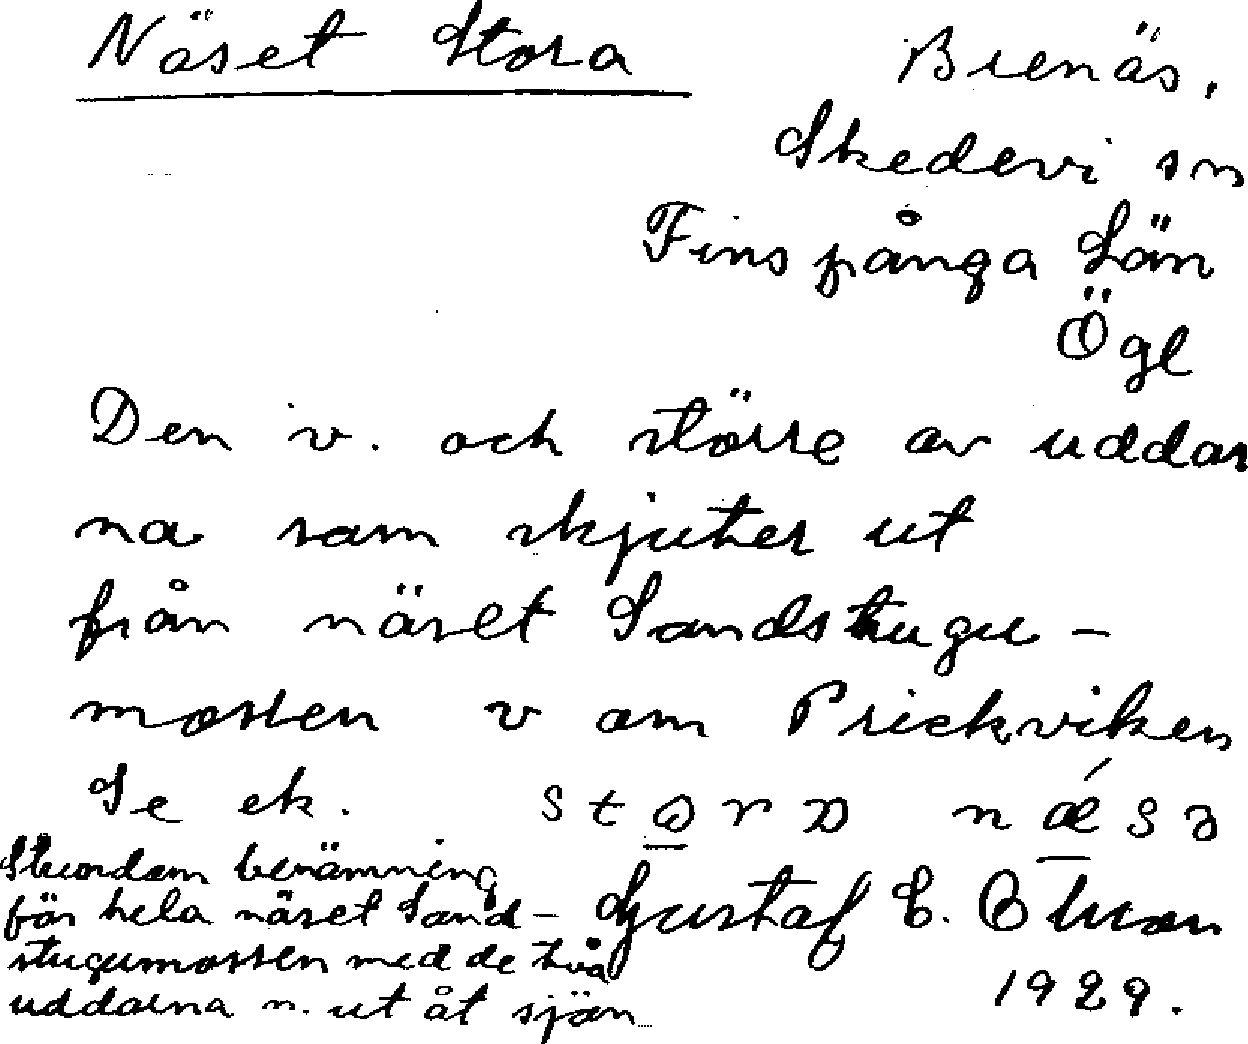 Näset Stora
Brenäs,
Skedevi sn
Finspånga Län
Ögl
Den v. och större av uddar
na som skjuter ut
från näset Sandstugu-
mossen v om Prickviken
Se ek.
Stundom benämning
för hela näset Sand-
stugumossen med de två
uddarna n. ut åt sjön
Gustaf E.
1929.